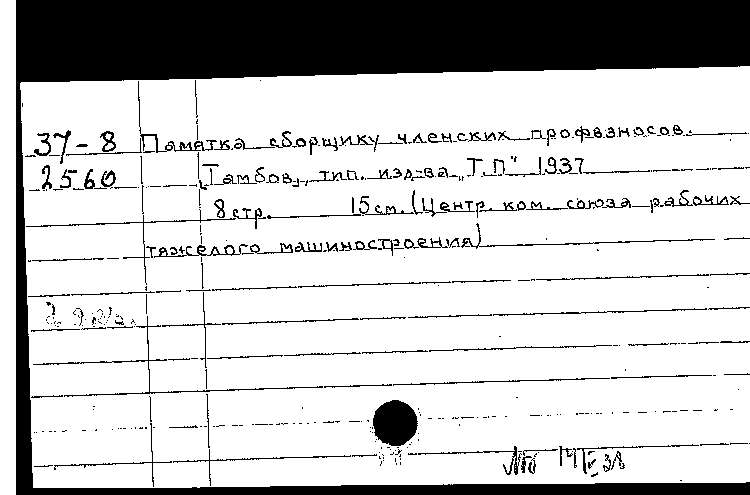 37-8 Памятка сборщику членских профвзносов.
2560 [Тамбов], тип. изд-ва „Т.П" 1937
8 стр. 15 см. (Центр. ком. союза рабочих
тяжелого машиностроения)